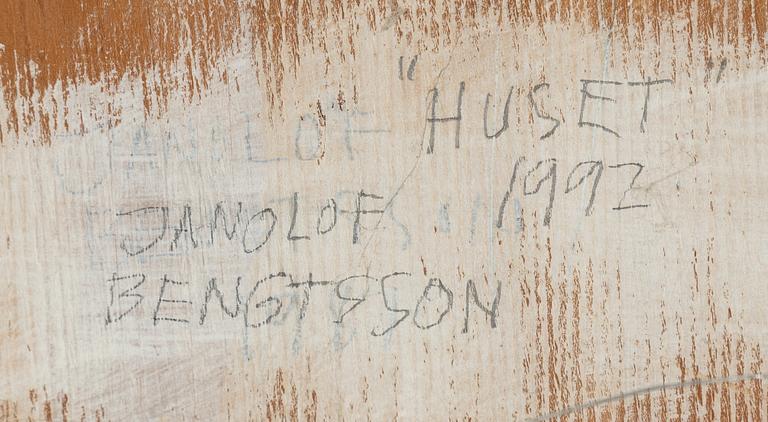 "HUSET"
1992
JANOLOF
BENGTSSON
JANOLOF